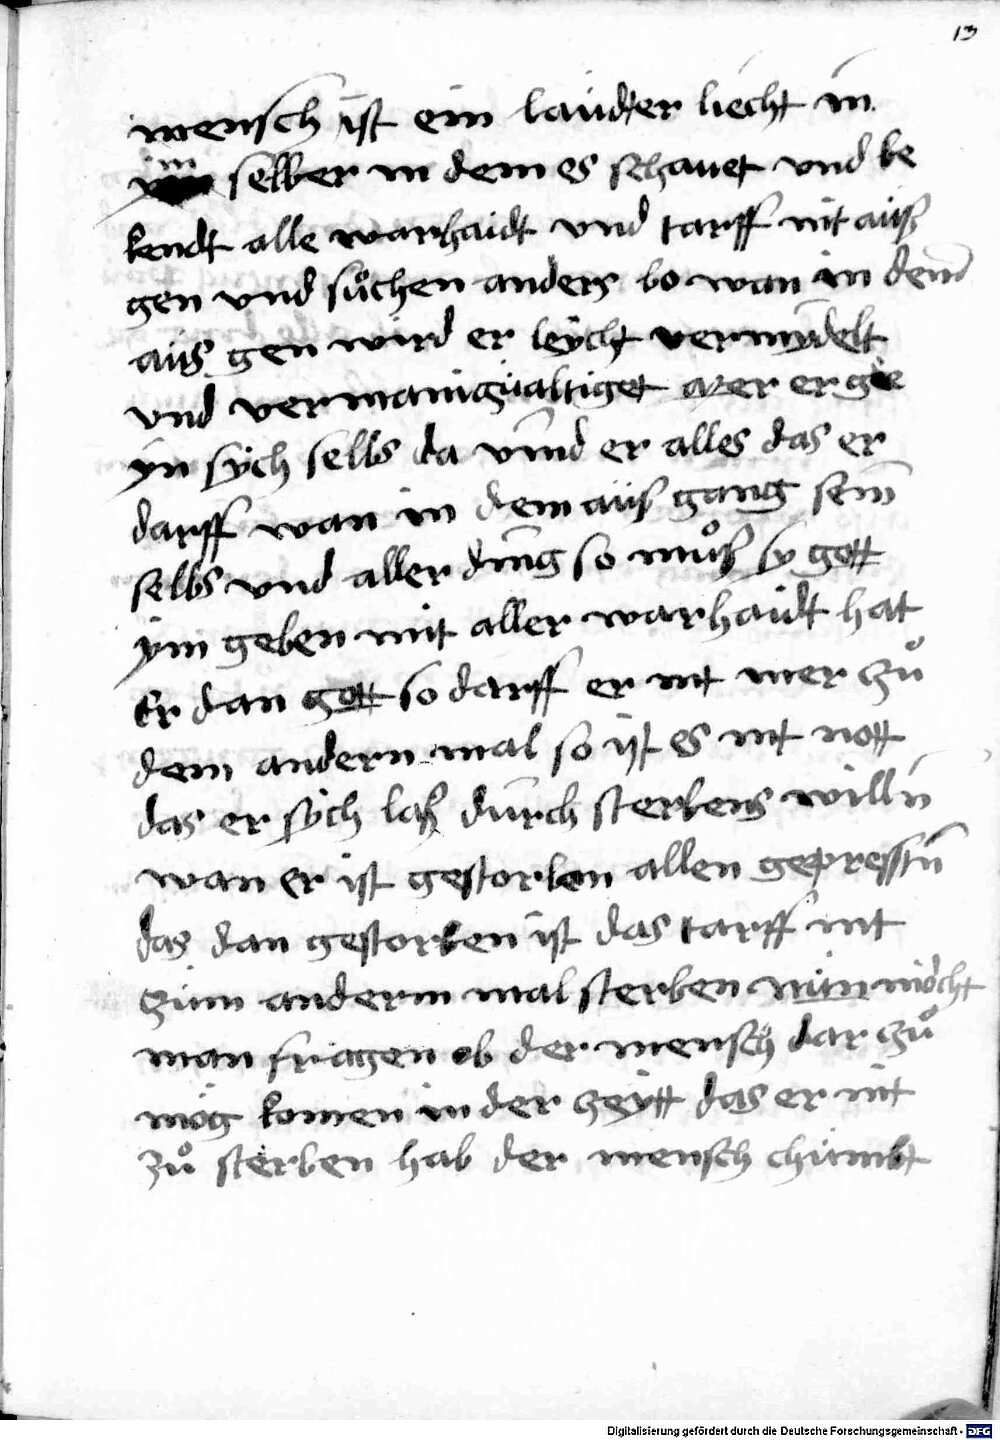 13
mensch ist ein laüdter liecht in
im selber in dem es schauet vnd be
kendt alle warhaidt vnd tarff nit aüß
gen vnd süchen anders bo wan in dem
aüß gen wird er leÿcht vermÿdelt
vnd vermanigüaltiget aber er gie
ÿn sÿch selbs da vind er alles das er
darff wan in dem aüß gang sein
selbs vnd aller ding so můß sy gott
ÿm geben mit aller warhaidt hat
Er dan gott so darff er nit mer zů
dem andern mal so ist es nit nott
das er sÿch laß dürch sterbens willn̄
wan er ist gestorben allen gepresstn̄
das dan gestorben ist das tarff nit
züm anderm mal sterben nün möcht
man fragen ob der mensch dar zů
mög komen in der zeÿtt das er nit
zů sterben hab der mensch chümbt
Digitalisierung gefördert durch die Deutsche Forschungsgemeinschaft - DFG